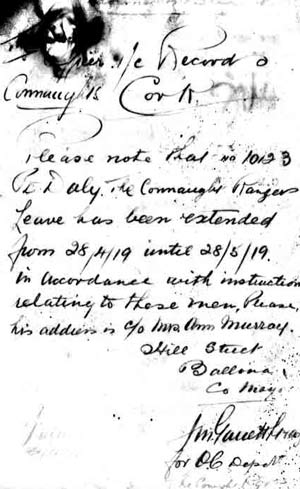 To Officer i/c Records
Connaughts Cork.
Please note that no 10123
Pte Daly. The Connaught Rangers
Leave has been extended
from 28/4/19 until 28/5/19.
in accordance with instructions
relating to these men, Please,
his address is c/o Mrs Ann Murray.
Hill Street
Ballina
Co Mayo
for O.C Depot